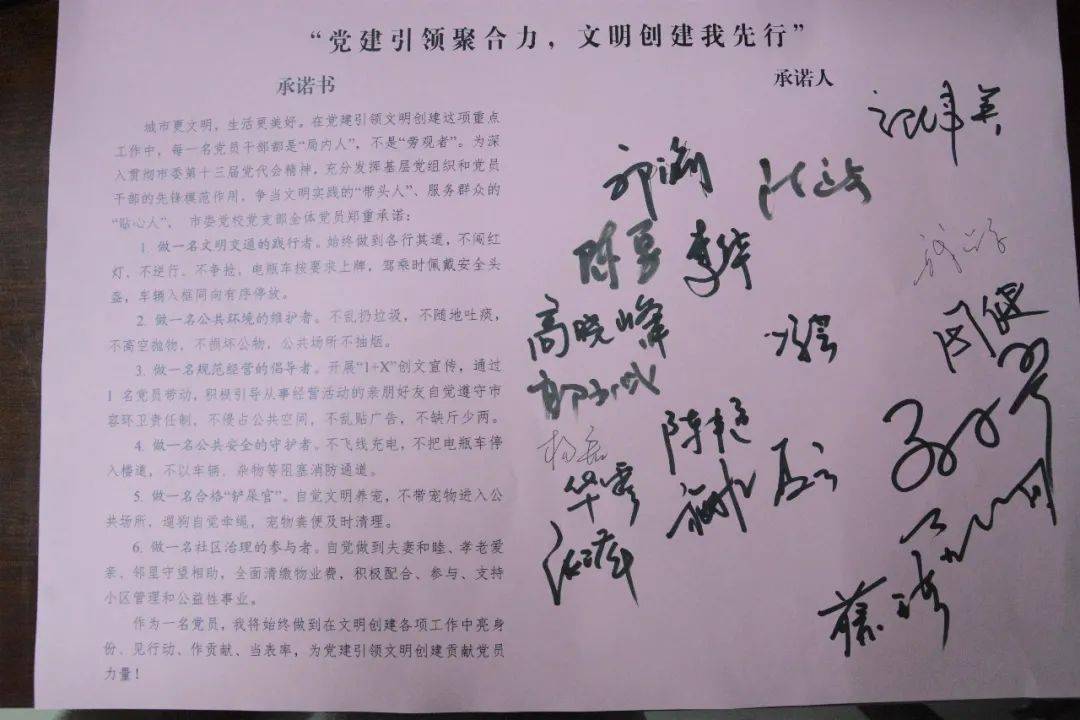 “党建引领聚合力，文明创建我先行”
承诺书
城市更文明，生活更美好。在党建引领文明创建这项重点
工作中，每一名党员干部都是“局内人”，不是“旁观者”。为深
入贯彻市委第十三届党代会精神，充分发挥基层党组织和党员
干部的先锋模范作用，争当文明实践的“带头人”、服务群众的
“贴心人”，市委党校党支部全体党员郑重承诺：
1. 做一名文明交通的践行者。始终做到各行其道，不闯红
灯、不逆行、不争抢，电瓶车按要求上牌，驾乘时佩戴安全头
盔，车辆入框同向有序停放。
2. 做一名公共环境的维护者。不乱扔垃圾，不随地吐痰，
不高空抛物，不损坏公物，公共场所不抽烟。
3. 做一名规范经营的倡导者。开展“1+X”创文宣传，通过
1 名党员带动，积极引导从事经营活动的亲朋好友自觉遵守市
容环卫责任制，不侵占公共空间，不乱贴广告，不缺斤少两。
4. 做一名公共安全的守护者。不飞线充电，不把电瓶车停
入楼道，不以车辆、杂物等阻塞消防通道。
5. 做一名合格“铲屎官”。自觉文明养宠，不带宠物进入公
共场所，遛狗自觉牵绳，宠物粪便及时清理。
6. 做一名社区治理的参与者。自觉做到夫妻和睦、孝老爱
亲、邻里守望相助，全面清缴物业费，积极配合、参与、支持
小区管理和公益性事业。
作为一名党员，我将始终做到在文明创建各项工作中亮身
份、见行动、作贡献、当表率，为党建引领文明创建贡献党员
力量！
承诺人
李华
高晓峰
陈艳
华雯
周健